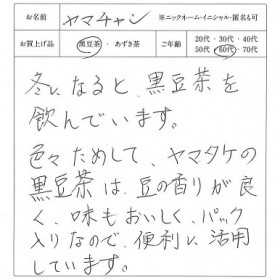 お名前 ヤマチャン ※ニックネーム・イニシャル・匿名も可
お買上げ品 黒豆茶・あずき茶 ご年齢 20代・30代・40代
50代・60代・70代
冬になると、黒豆茶を
飲んでいます。
色々ためして、ヤマタケの
黒豆茶は、豆の香りが良
く、味もおいしく、パック
入りなので、便利に活用
しています。